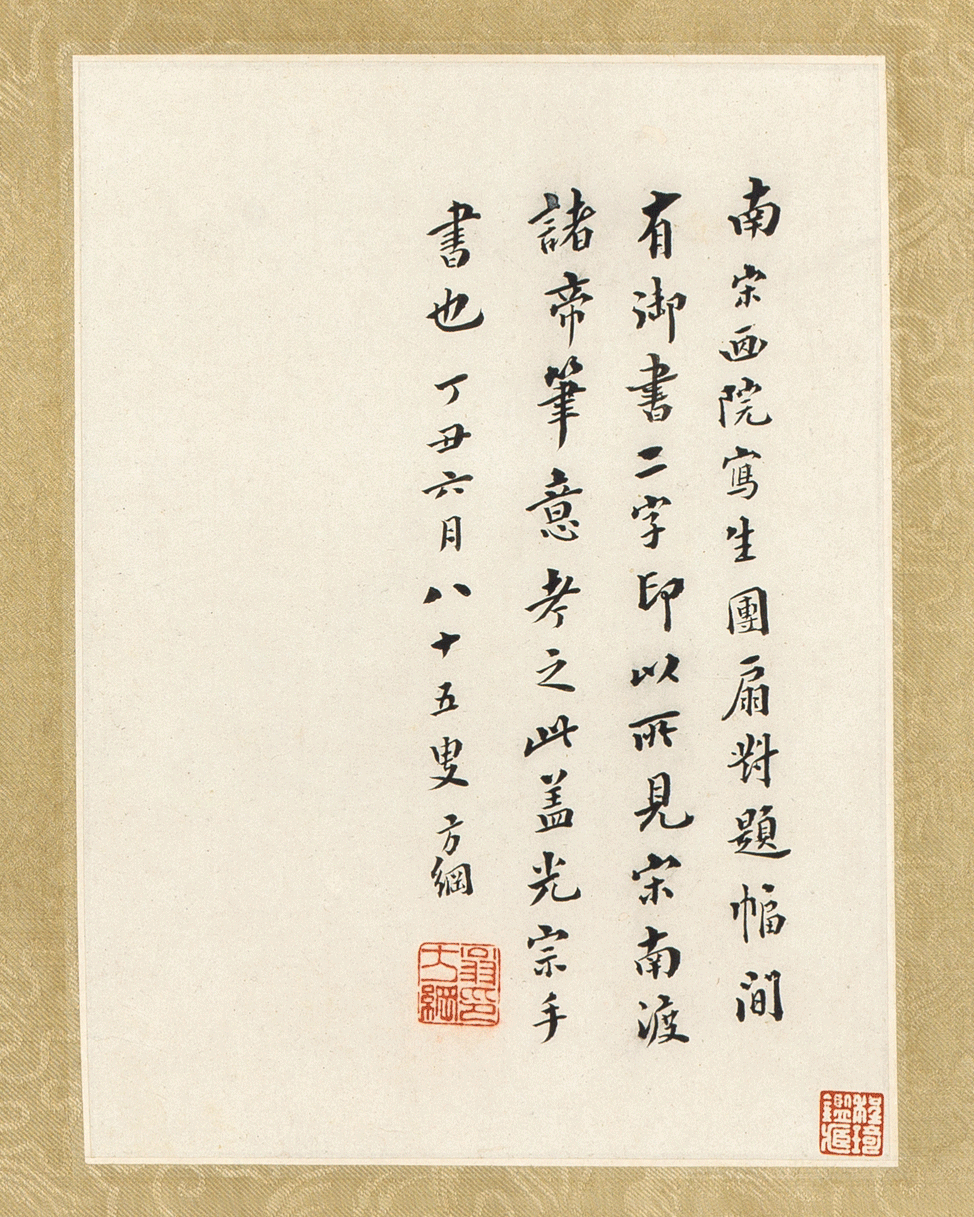 南宋西院寫生團扇對題幅間
有御書二字印以所見宋南渡
諸帝筆意考之此盖光宗手
書也 丁丑六月八十五叟方綱
翁方綱印